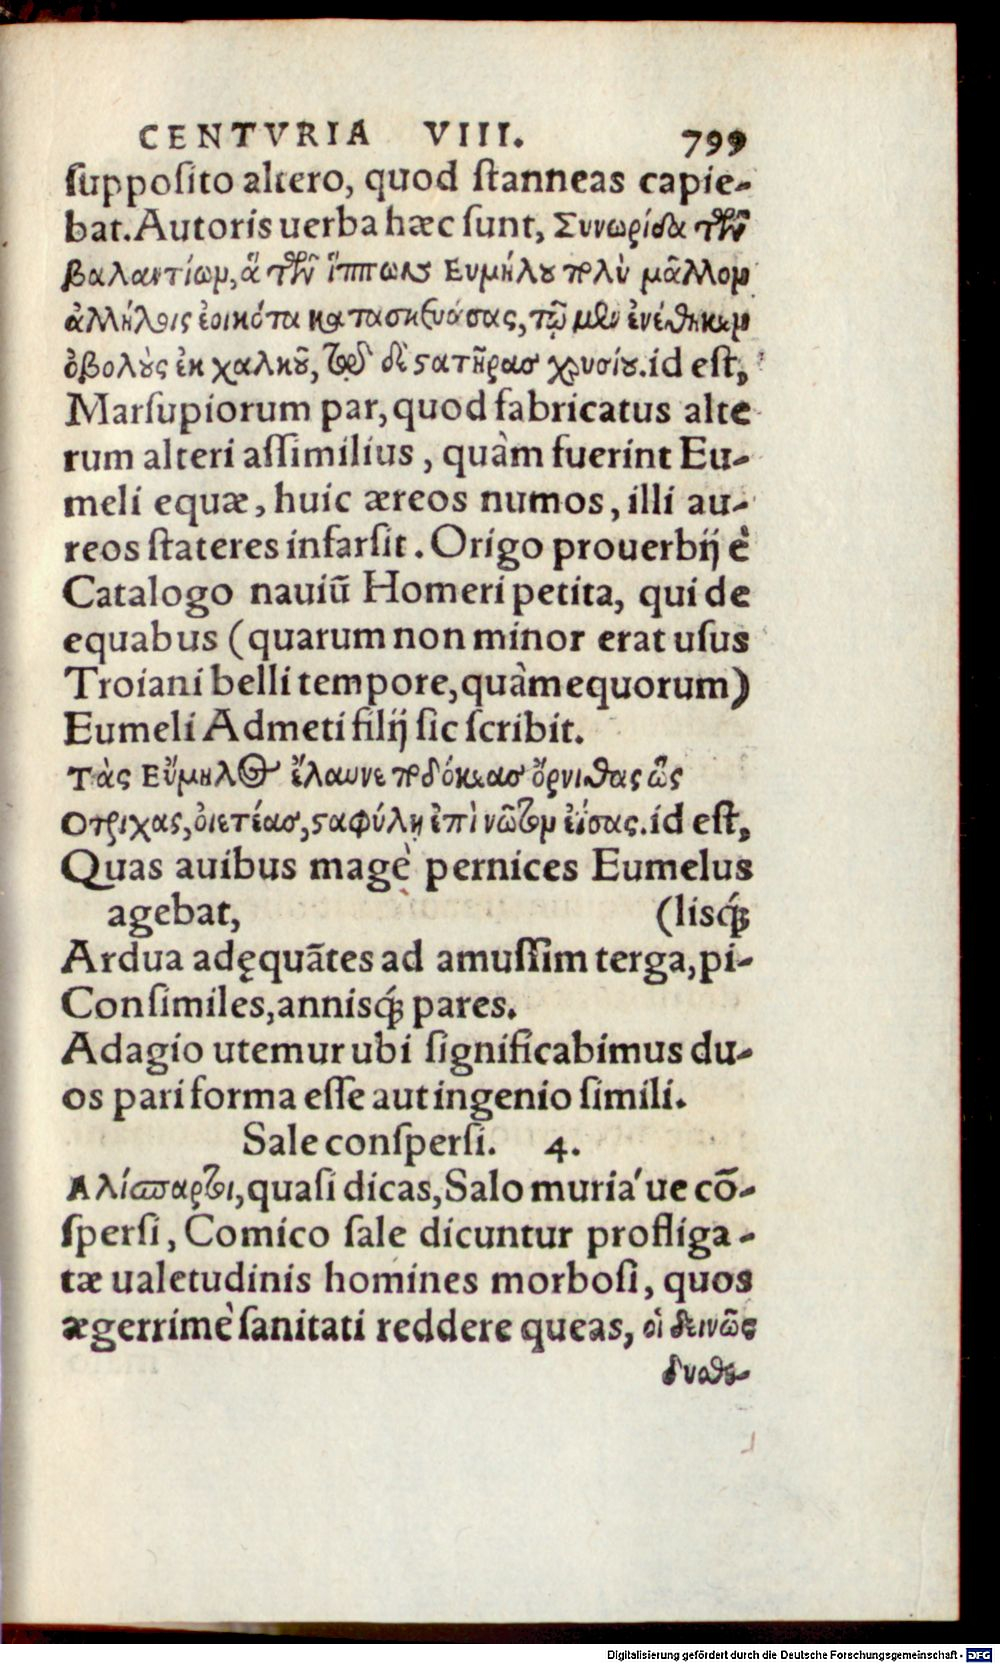 CENTVRIA VIII. 799
supposito altero, quod stanneas capie-
bat. Autoris uerba hæc sunt, Συνωρίδα τῶν
βαλαντίων, ἃ τῶν ἵππων Ευμήλου πολὺ μᾶλλον
ἀλλήλοις ἐοικότα κατασκευάσας, τῷ μὲν ἐνέθηκεν
ὀβολοὺς ἐκ χαλκοῦ, τῷ δὲ στατῆρας χρυσίου. id est,
Marsupiorum par, quod fabricatus alte
rum alteri assimilius, quàm fuerint Eu-
meli equæ, huic æreos numos, illi au-
reos stateres infarsit. Origo prouerbij è
Catalogo nauiũ Homeri petita, qui de
equabus (quarum non minor erat usus
Troiani belli tempore, quàm equorum)
Eumeli Admeti filij sic scribit.
Τὰς Εὔμηλος ἔλαυνε ποδώκεας ὄρνιθας ὣς
Οτριχας, οἰετέας, σταφύλῃ ἐπὶ νῶτον ἐΐσας. id est,
Quas auibus magè pernices Eumelus
agebat, (lisq́;
Ardua adęquãtes ad amussim terga, pi-
Consimiles, annisq́; pares.
Adagio utemur ubi significabimus du-
os pari forma esse aut ingenio simili.
Sale conspersi. 4.
Αλίσπαρτοι, quasi dicas, Salo muria´ue cõ-
spersi, Comico sale dicuntur profliga-
tæ ualetudinis homines morbosi, quos
ægerrimè sanitati reddere queas, οἱ δεινῶς
δυσθε-
Digitalisierung gefördert durch die Deutsche Forschungsgemeinschaft - DFG